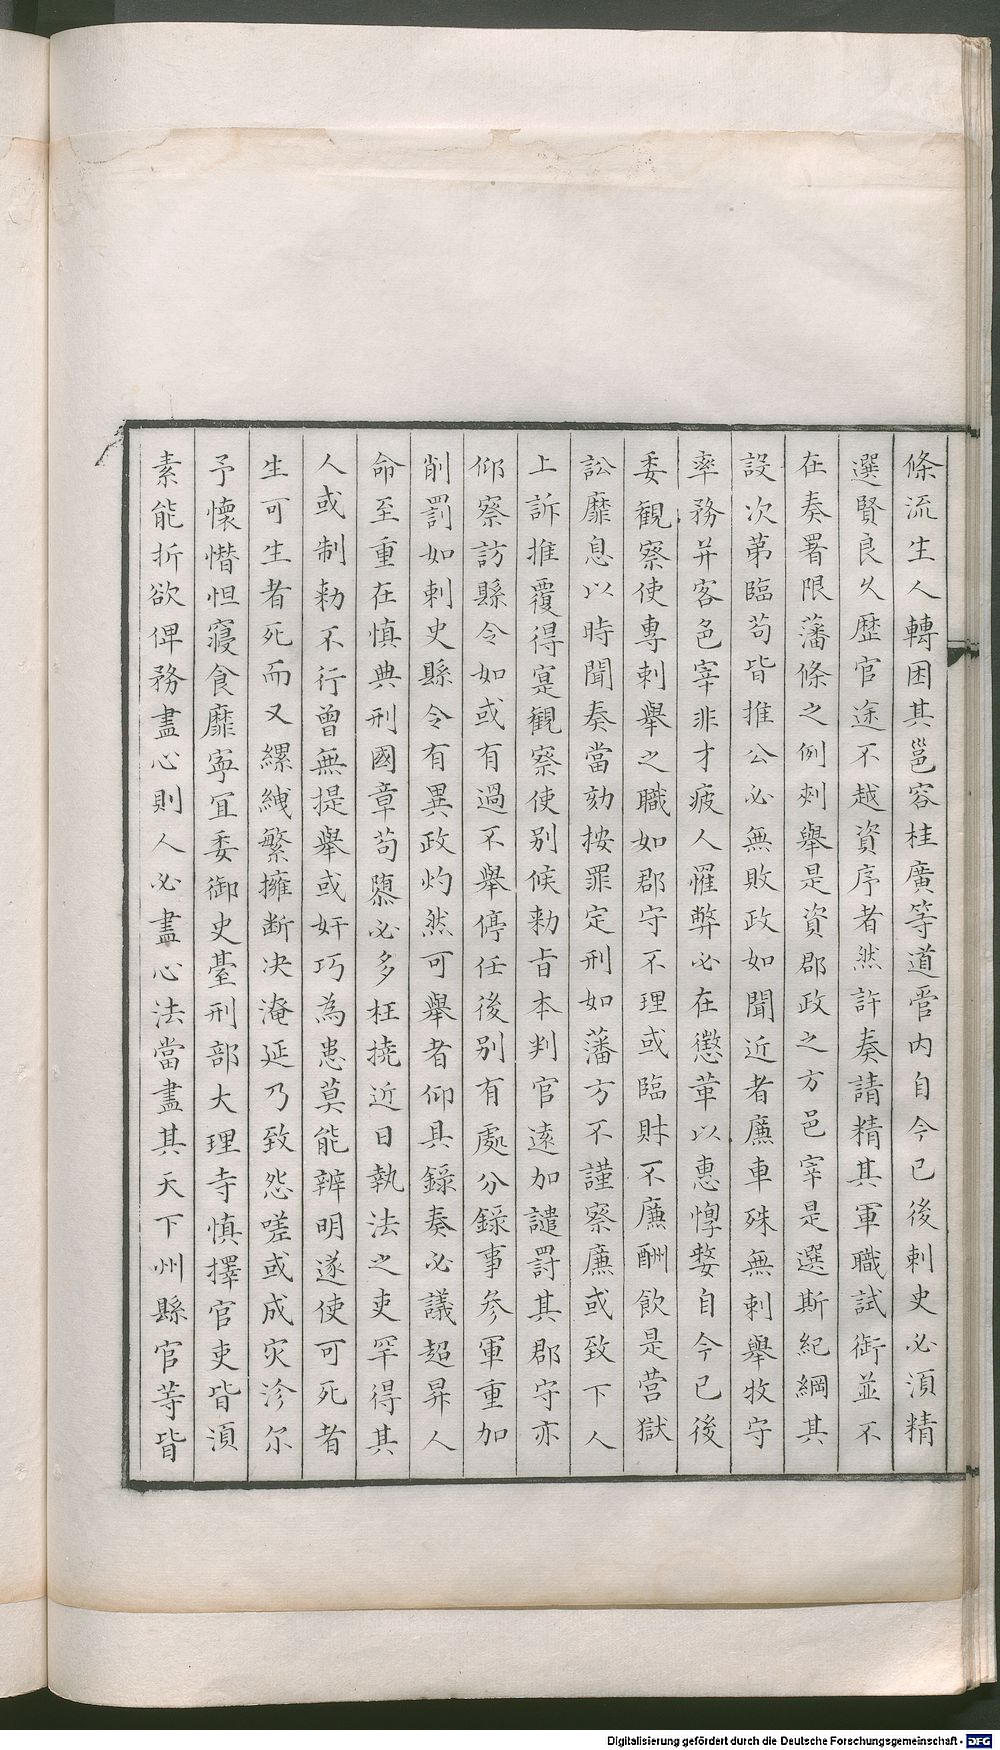 條流生人轉困其邕容桂廣等道管内自今已後剌史必湏精
選賢良久歷官途不越資序者然許奏請精其軍職試銜並不
在奏署限藩條之例刾舉是資郡政之方邑宰是選斯紀綱其
設次第臨苟皆推公必無敗政如聞近者廉車殊無刺舉牧守
率務并客邑宰非才疲人罹弊必在懲革以惠惸嫠自今已後
委觀察使專刺舉之職如郡守不理或臨財不廉酬飲是營獄
訟靡息以時聞奏當劾按罪定刑如藩方不謹察廉或致下人
上訴推覆得寔觀察使别候勑旨本判官遠加譴罰其郡守亦
仰察訪縣令如或有過不舉停任後别有處分錄事参軍重加
削罰如刺史縣令有異政灼然可舉者仰具錄奏必議超昇人
命至重在慎典刑國章苟隳必多枉撓近日執法之吏罕得其
人或制勑不行曾無提舉或奸巧為患莫能辨明遂使可死者
生可生者死而又縲絏繁擁断决淹延乃致怨嗟或成灾沴尔
予懷憯怛寢食靡寧宜委御史臺刑部大理寺慎擇官吏皆湏
素能折欲俾務盡心則人必盡心法當盡其天下州縣官等皆
Digitalisierung gefördert durch die Deutsche Forschungsgemeinschaft - DFG